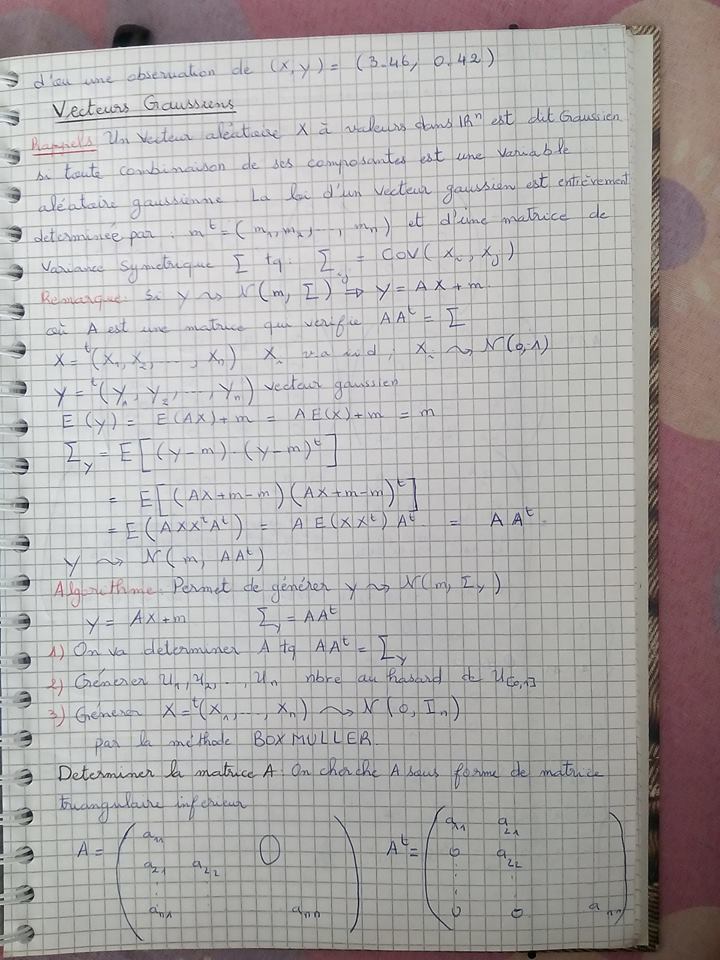 d'où une observation de (X, Y) = (3.46, 0.42)
Vecteurs Gaussiens
Rappels Un vecteur aléatoire X à valeurs dans IRⁿ est dit Gaussien
si toute combinaison de ses composantes est une variable
aléatoire gaussienne. La loi d'un vecteur gaussien est entièrement
determinée par : mᵗ = (m₁, m₂, ..., mₙ) et d'une matrice de
Variance Symetrique Σ tq : Σᵢⱼ = COV(Xᵢ, Xⱼ)
Remarque: Si Y ⇝ N(m, Σ) ⇒ Y = AX + m.
où A est une matrice qui verifie AAᵗ = Σ
X = ᵗ(X₁, X₂, ..., Xₙ) Xᵢ v a i i d ; Xᵢ ⇝ N(0,1)
Y = ᵗ(Y₁, Y₂, ..., Yₙ) vecteur gaussien
E(Y) = E(AX) + m = A E(X) + m = m
Σ_Y = E[(Y-m).(Y-m)ᵗ]
= E[(AX+m-m)(AX+m-m)ᵗ]
= E(AXXᵗAᵗ) = A E(XXᵗ) Aᵗ = A Aᵗ.
Y ⇝ N(m, AAᵗ)
Algorithme: Permet de générer Y ⇝ N(m, Σ_Y)
Y = AX + m Σ_Y = AAᵗ
1) On va determiner A tq AAᵗ = Σ_Y
2) Générer U₁, U₂, .., Uₙ nbre au hasard de U[0,1]
3) Générer X = ᵗ(X₁, ..., Xₙ) ⇝ N(0, Iₙ)
par la méthode BOX MULLER.
Determiner la matrice A: On cherche A sous forme de matrice
triangulaire inferieur
A = ( a₁₁ 0 Aᵗ = ( a₁₁ a₂₁
a₂₁ a₂₂ 0 a₂₂
⋮ ⋮
aₙ₁ aₙₙ ) 0 0 aₙₙ )